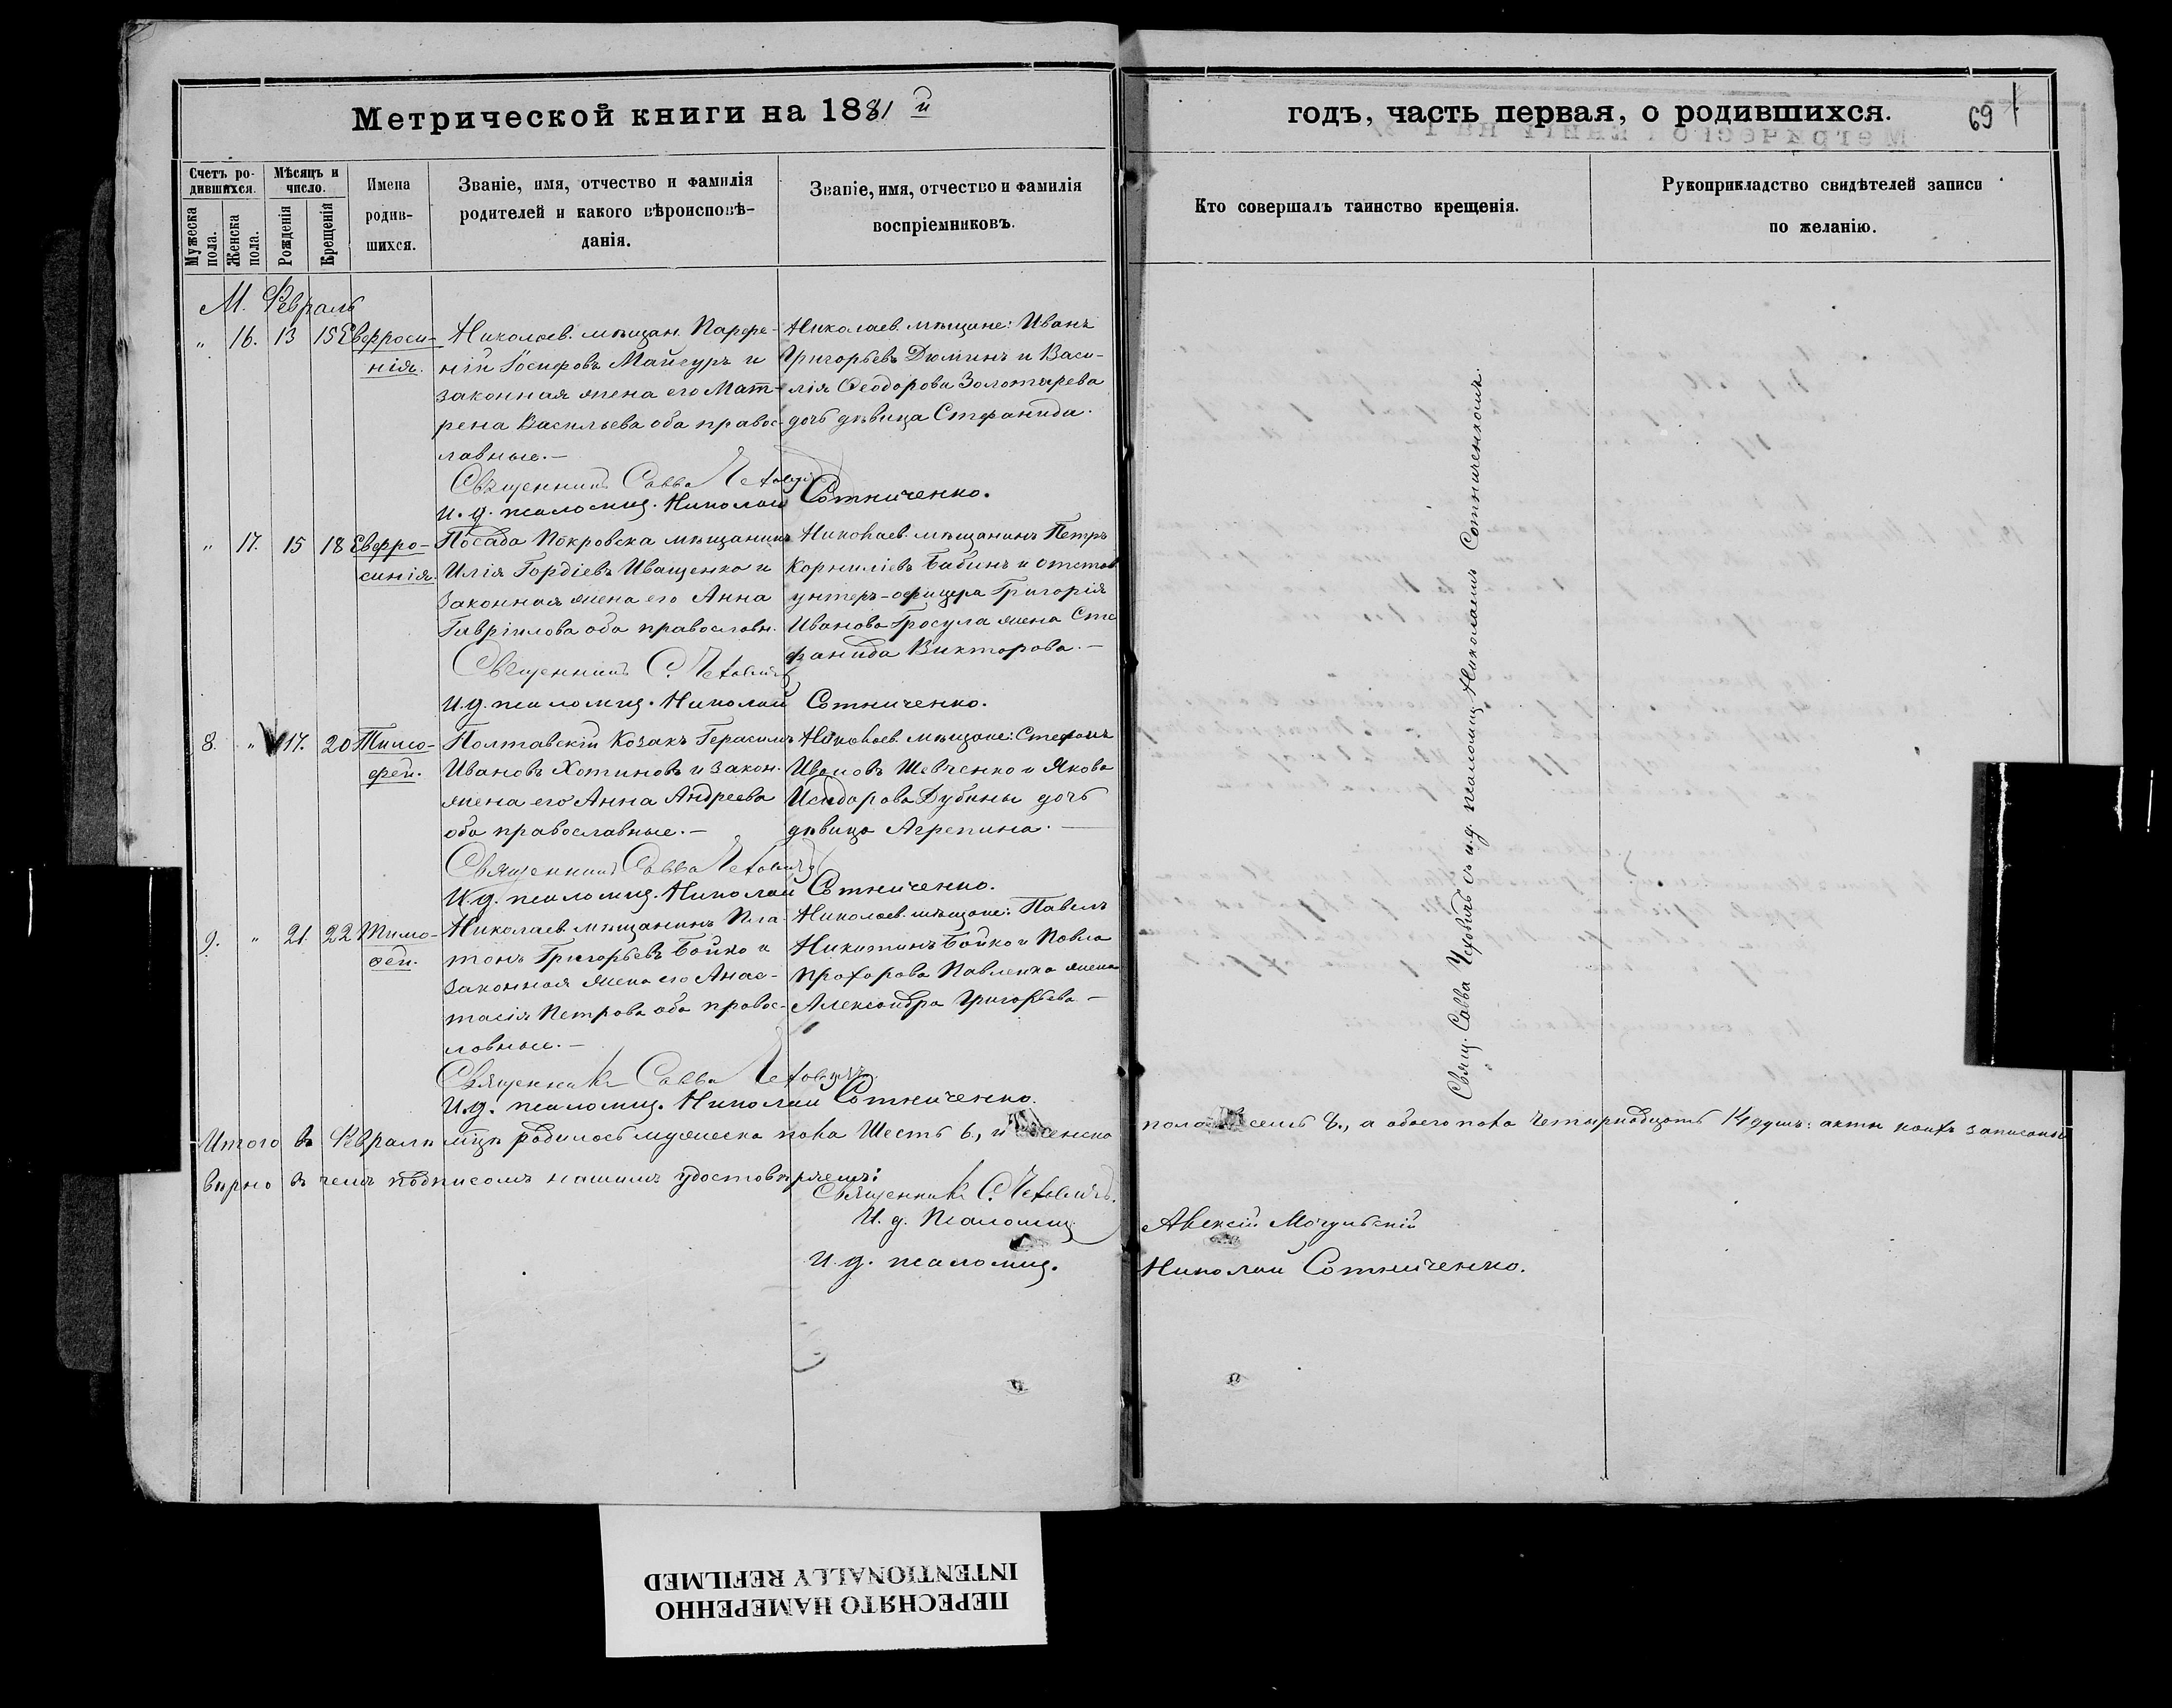 Метрической книги на 1881й
годъ, часть первая, о родившихся.
69
Счетъ родившихся.
Мужеска пола.
Женска пола.
Мѣсяцъ и число.
Рожденія
Крещенія
Имена родив-
шихся.
Званіе, имя, отчество и фамилія
родителей и какого вѣроисповѣ-
данія.
Званіе, имя, отчество и фамилія
воспріемниковъ.
Кто совершалъ таинство крещенія.
Рукоприкладство свидѣтелей записи
по желанію.
М. Февраль
" 16. 13 15 Евфроси-
нія.
Николаев. мѣщан. Парфе-
ній Іосифовъ Майсуръ и
законная жена его Мат-
рена Васильева оба правос-
лавные.—
Николаев. мѣщане: Иванъ
Григорьевъ Дюминъ и Васи-
лія Ѳеодорова Золотарева
дочь дѣвица Стефанида.
Священникъ Савва Чеховичъ
И. д. псаломщ. Николай Сотниченко.
" 17. 15 18 Евфро-
синія.
Посада Покровска мѣщанинъ
Илія Гордіевъ Иващенко и
законная жена его Анна
Гавріилова оба православн.
Николаев. мѣщанинъ Петръ
Корниліевъ Бабинъ и отстав
унтеръ-офицера Григорія
Иванова Гросула жена Сте
фанида Викторова.—
Священникъ С. Чеховичъ
И. д. псаломщ. Николай Сотниченко.
8. " 17. 20 Тимо-
фей.
Полтавскій Козакъ Герасимъ
Ивановъ Хотиновъ и закон.
жена его Анна Андреева
оба православные.—
Николаев. мѣщане: Стефанъ
Ивановъ Шевченко и Якова
Исидорова Дубины дочь
дѣвица Агрепина.—
Священникъ Савва Чеховичъ
И. д. псаломщ. Николай Сотниченко.
9. " 21. 22 Тимо-
фей.
Николаев. мѣщанинъ Пла-
тонъ Григорьевъ Бойко и
законная жена его Анас-
тасія Петрова оба правос-
лавные.—
Николаев. мѣщане: Павелъ
Никитинъ Бойко и Павла
Прохорова Павленка жена
Александра Григорьева—
Священникъ Савва Чеховичъ.
И. д. псаломщ. Николай Сотниченко.
Свящ. Савва Чеховичъ съ и.д. псаломщ. Николаемъ Сотниченкомъ.
Итого въ Февралѣ мѣцѣ родилось мужеска пола Шесть 6, и женска
пола семь 8., а обоего пола четырнадцать 14 душъ: акты коихъ записаны
вѣрно въ чемъ подписомъ нашимъ удостовѣряемъ:
Священникъ С. Чеховичъ.
И. д. Псаломщ. Алексій Могульскій
И. д. псаломщ. Николай Сотниченко.
ПЕРЕСНЯТО НАМЕРЕННО
INTENTIONALLY REFILMED